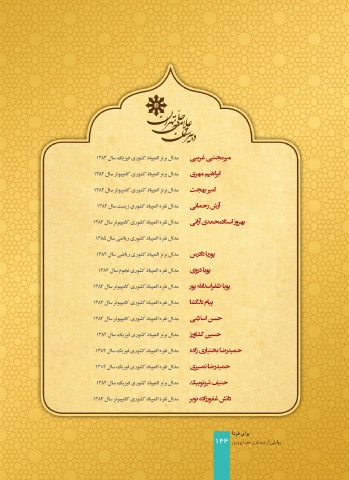 دبیرستان علامه حلی تهران
میرمجتبی غریبی مدال برنز المپیاد کشوری فیزیک، سال ۱۳۸۳
ابراهیم مهری مدال برنز المپیاد کشوری کامپیوتر، سال ۱۳۸۲
امیر بهجت مدال برنز المپیاد کشوری کامپیوتر، سال ۱۳۸۳
آرش رحمانی مدال نقره المپیاد کشوری زیست، سال ۱۳۸۴
بهروز استادمحمدی آرانی مدال نقره المپیاد کشوری کامپیوتر، سال ۱۳۸۴
مدال نقره المپیاد کشوری ریاضی، سال ۱۳۸۵
پویا دادرس مدال برنز المپیاد کشوری ریاضی، سال ۱۳۸۲
پویا درزی مدال نقره المپیاد کشوری نجوم، سال ۱۳۸۳
پویا ظفراسدالله پور مدال نقره المپیاد کشوری کامپیوتر، سال ۱۳۸۴
پیام دلگشا مدال نقره المپیاد کشوری کامپیوتر، سال ۱۳۸۴
حسن اسلامی مدال نقره المپیاد کشوری کامپیوتر، سال ۱۳۸۲
حسین کشاورز مدال برنز المپیاد کشوری فیزیک، سال
حمیدرضا بختیاری زاده مدال نقره المپیاد کشوری فیزیک، سال ۱۳۸۲
حمیدرضا نصیری مدال نقره المپیاد کشوری فیزیک، سال ۱۳۸۲
حنیف مدال برنز المپیاد کشوری فیزیک، سال ۱۳۸۲
دانش غفورزاده نوبر مدال نقره المپیاد کشوری کامپیوتر، سال ۱۳۸۴
برای فردا
۱۴۳